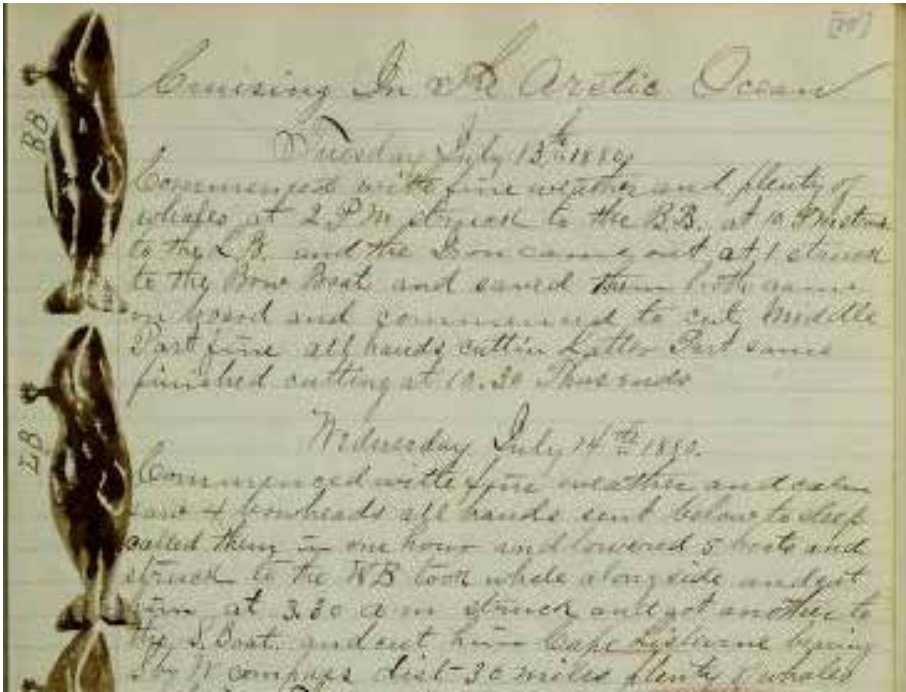 Cruising In The Arctic Ocean
Tuesday July 13th 1880
BB
Commenced with fine weather and plenty of
whales at 2 P M struck to the B.B. at 10 P M struck
to the L B. and the Iron came out at 1 struck
to the Bow Boat and saved them both came
on board and commenced to cut Middle
Part fine all hands cuttin Latter Part same
finished cutting at 10.30 Thus ends
Wednesday July 14th 1880.
LB
Commenced with fine weather and calm
saw 4 bowheads all hands sent below to sleep
called them in one hour and lowered 5 boats and
struck to the WB took whale alongside and cut
him at 3.30 a m struck and got another to
the S. Boat. and cut him Cape Lisburne bearing
S by W compass dist 30 miles plenty of whales